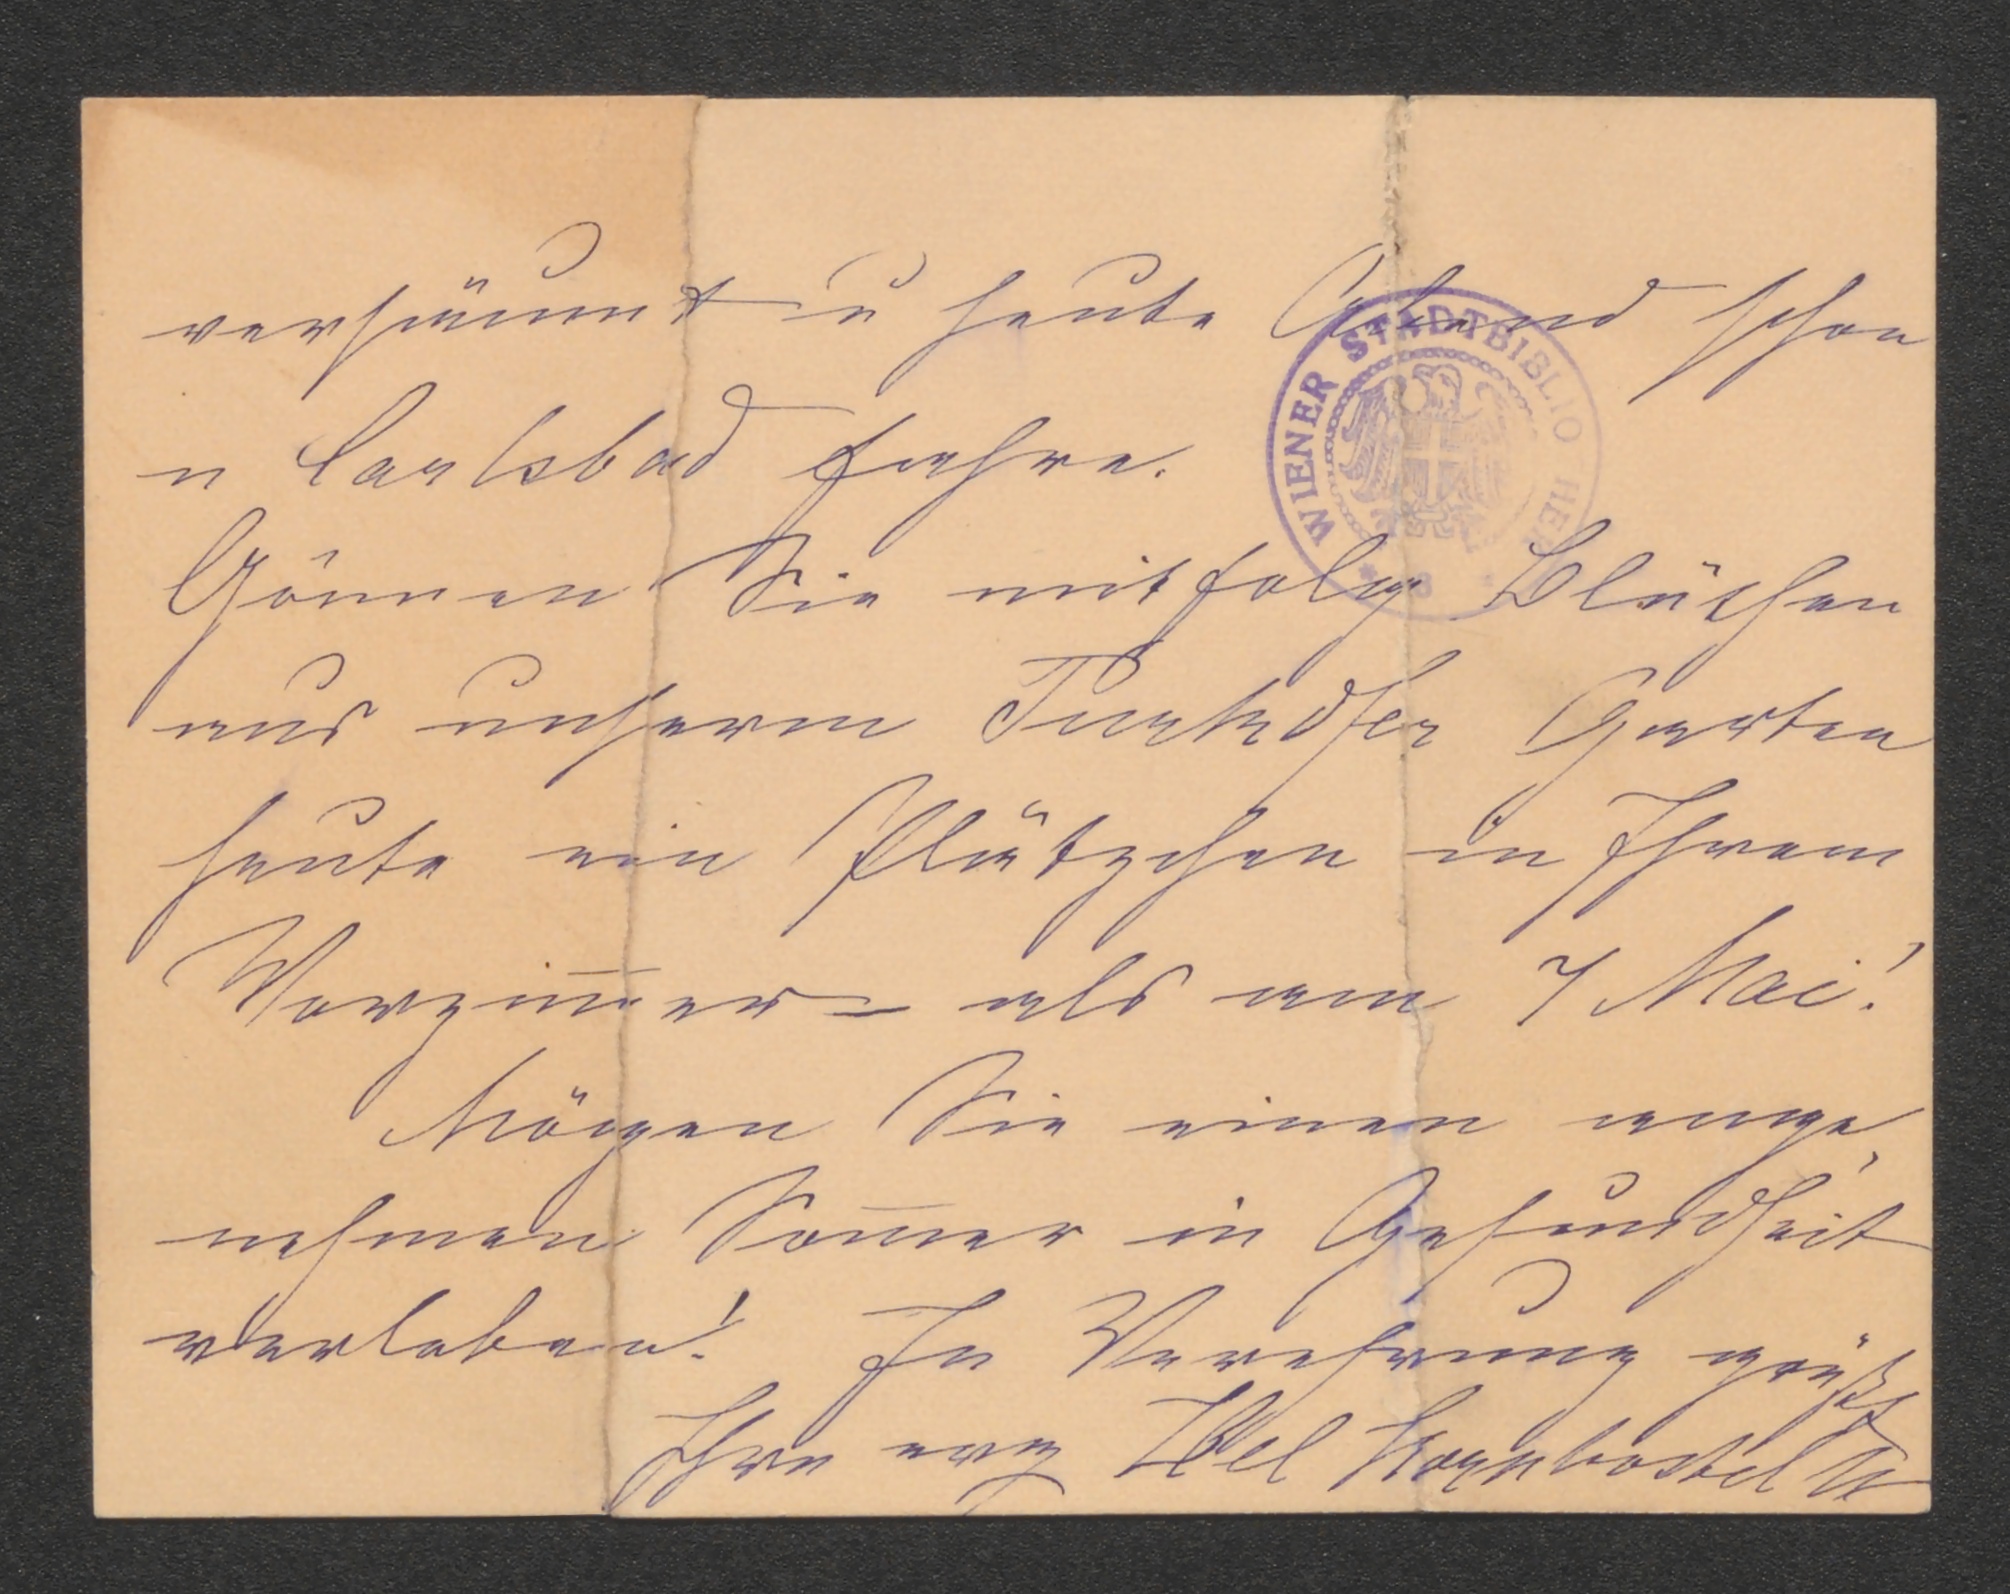 versäumt u heute Abend schon
n Carlsbad fahre.
Gönnen Sie mitfolg Blüthen
aus unserm Garten
heute ein Plätzchen in Ihrem
Vorzim̅er – als am 7 Mai!
Mögen Sie einen ange
nehmen Som̅er in Gesundheit
verleben! In Verehrung grüßt
Ihre erg Hornbostel
WIENER STADTBIBLIOTHEK